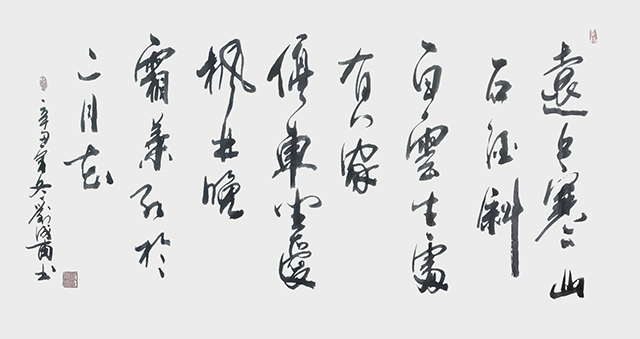 遠上寒山
石徑斜
白雲生處
有人家
停車坐愛
楓林晚
霜葉紅於
二月花
辛丑冬劉書